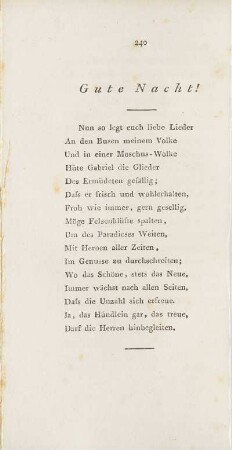 240
Gute Nacht!
Nun so legt euch liebe Lieder
An den Busen meinem Volke
Und in einer Moschus-Wolke
Hüte Gabriel die Glieder
Des Ermüdeten gefällig;
Daſs er frisch und wohlerhalten,
Froh wie immer, gern gesellig,
Möge Felsenklüfte spalten,
Um des Paradieses Weiten,
Mit Heroen aller Zeiten,
Im Genusse zu durchschreiten;
Wo das Schöne, stets das Neue,
Immer wächst nach allen Seiten,
Daſs die Unzahl sich erfreue.
Ja, das Hündlein gar, das treue,
Darf die Herren hinbegleiten.